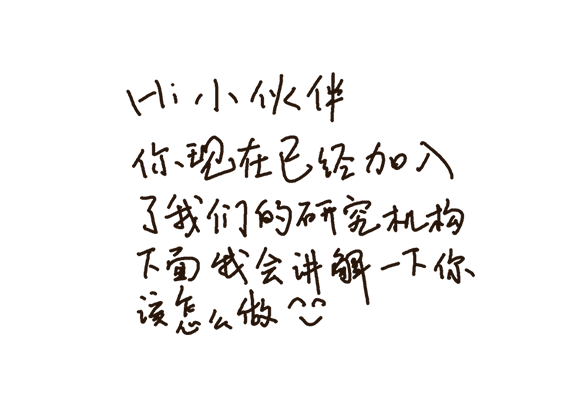 Hi 小伙伴
你现在已经加入
了我们的研究机构
下面我会讲解一下你
该怎么做